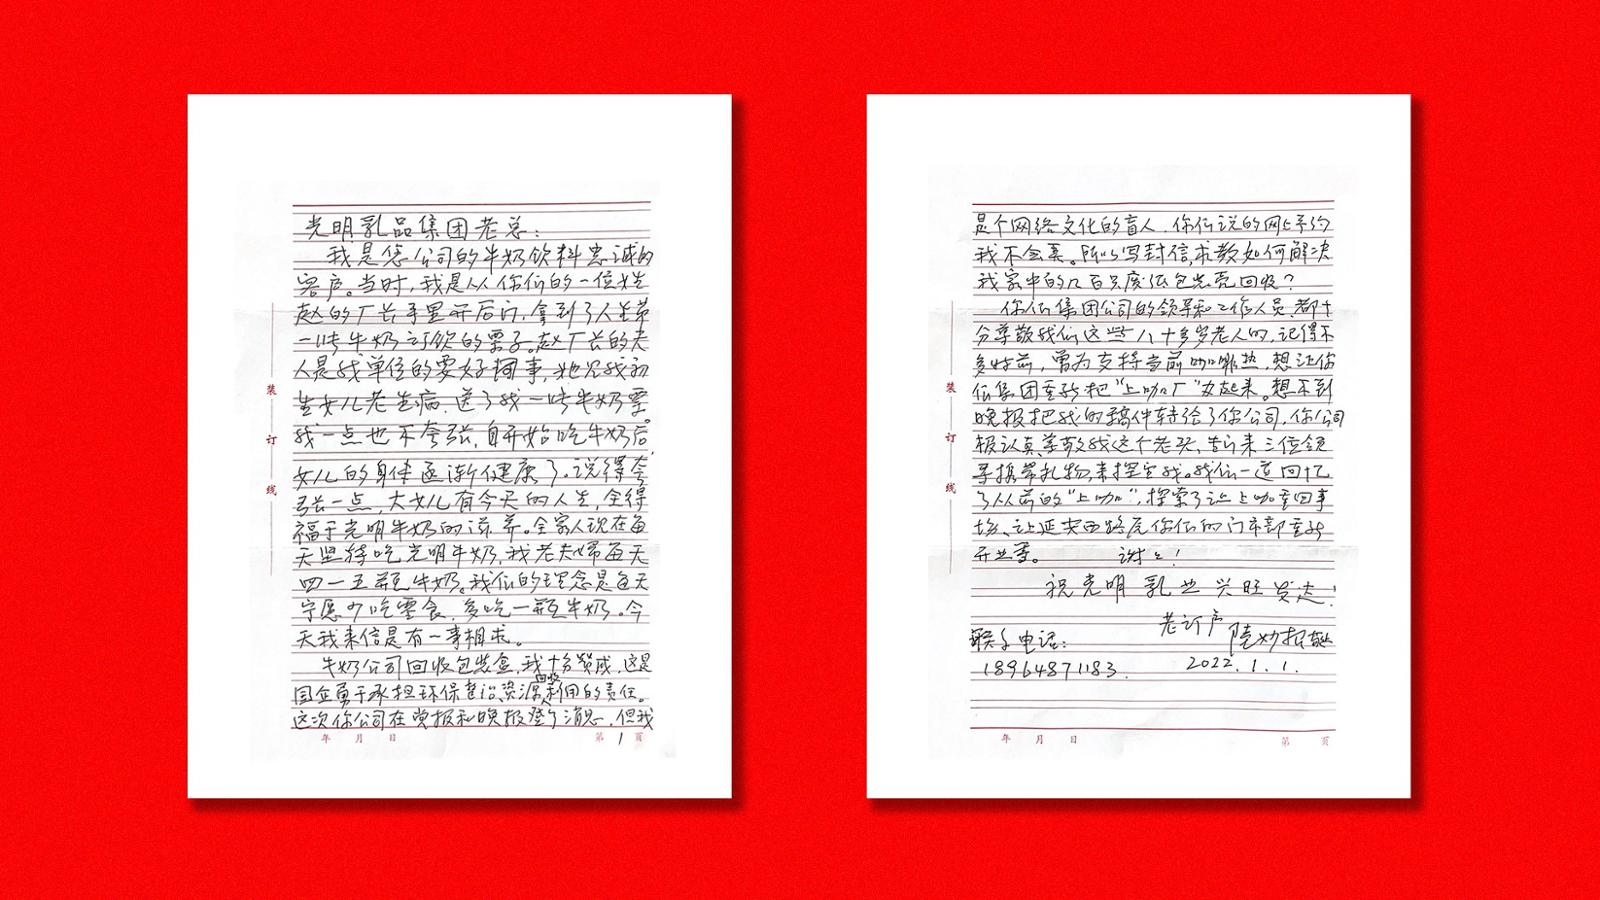 光明乳品集团老总：
我是您公司的牛奶饮料忠诚的
客户。当时,我是从你们的一位姓
赵的厂长手里开后门,拿到了人生第
一些牛奶订饮的票子。赵厂长的夫
人是我单位的要好同事,她见我初
生女儿老生病,送了我一些牛奶票。
我一点也不夸张,自开始吃牛奶后,
女儿的身体逐渐健康了。说得夸
张一点,大女儿有今天的人生,全得
福于光明牛奶的滋养。全家人现在每
天坚持吃光明牛奶,我老夫妇每天
四一五瓶牛奶。我们的理念是每天
宁愿少吃零食,多吃一瓶牛奶。今
天我来信是有一事相求。
牛奶公司回收包装盒,我十分赞成,这是
国企勇于承担环保整治、资源回收利用的责任。
这次你公司在党报和晚报登了消息,但我
年 月 日
第 1 页
装
订
线
是个网络文化的盲人,你们说的网上预约
我不会弄。所以写封信,求教如何解决
我家中的几百只废纸包壳壳回收？
你们集团公司的领导和工作人员,都十
分尊敬我们这些八十多岁老人的,记得不
多时前,曾为支持当前咖啡热,想让你
们集团重新把“上咖厂”办起来。想不到
晚报把我的稿件转给了你公司,你公司
极认真尊敬我这个老头,前来三位领
导携带礼物来探望我。我们一道回忆
了从前的“上咖”,探索了让上咖重回市
场、让延安西路底你们的门市部重新
开业等。 谢谢!
祝光明乳业兴旺发达!
老订户
联系电话:
18964871183.
2022.1.1.
年 月 日
第 页
装
订
线